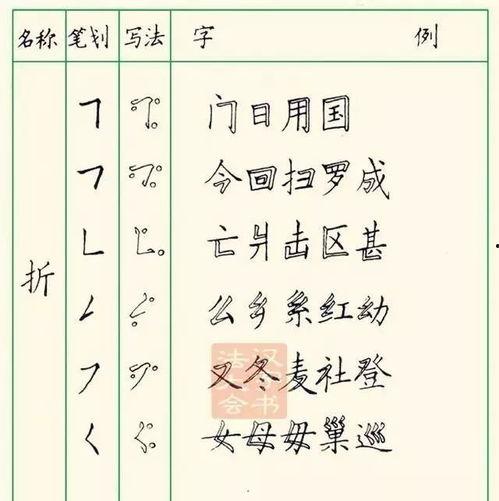 名称 笔划 写法 字 例
折
㇕ 门日用国
㇇ 今回扫罗成
㇗ 亡爿击区甚
㇜ 么乡系红幼
㇇ 又冬麦社登
㇛ 女母毋巢巡